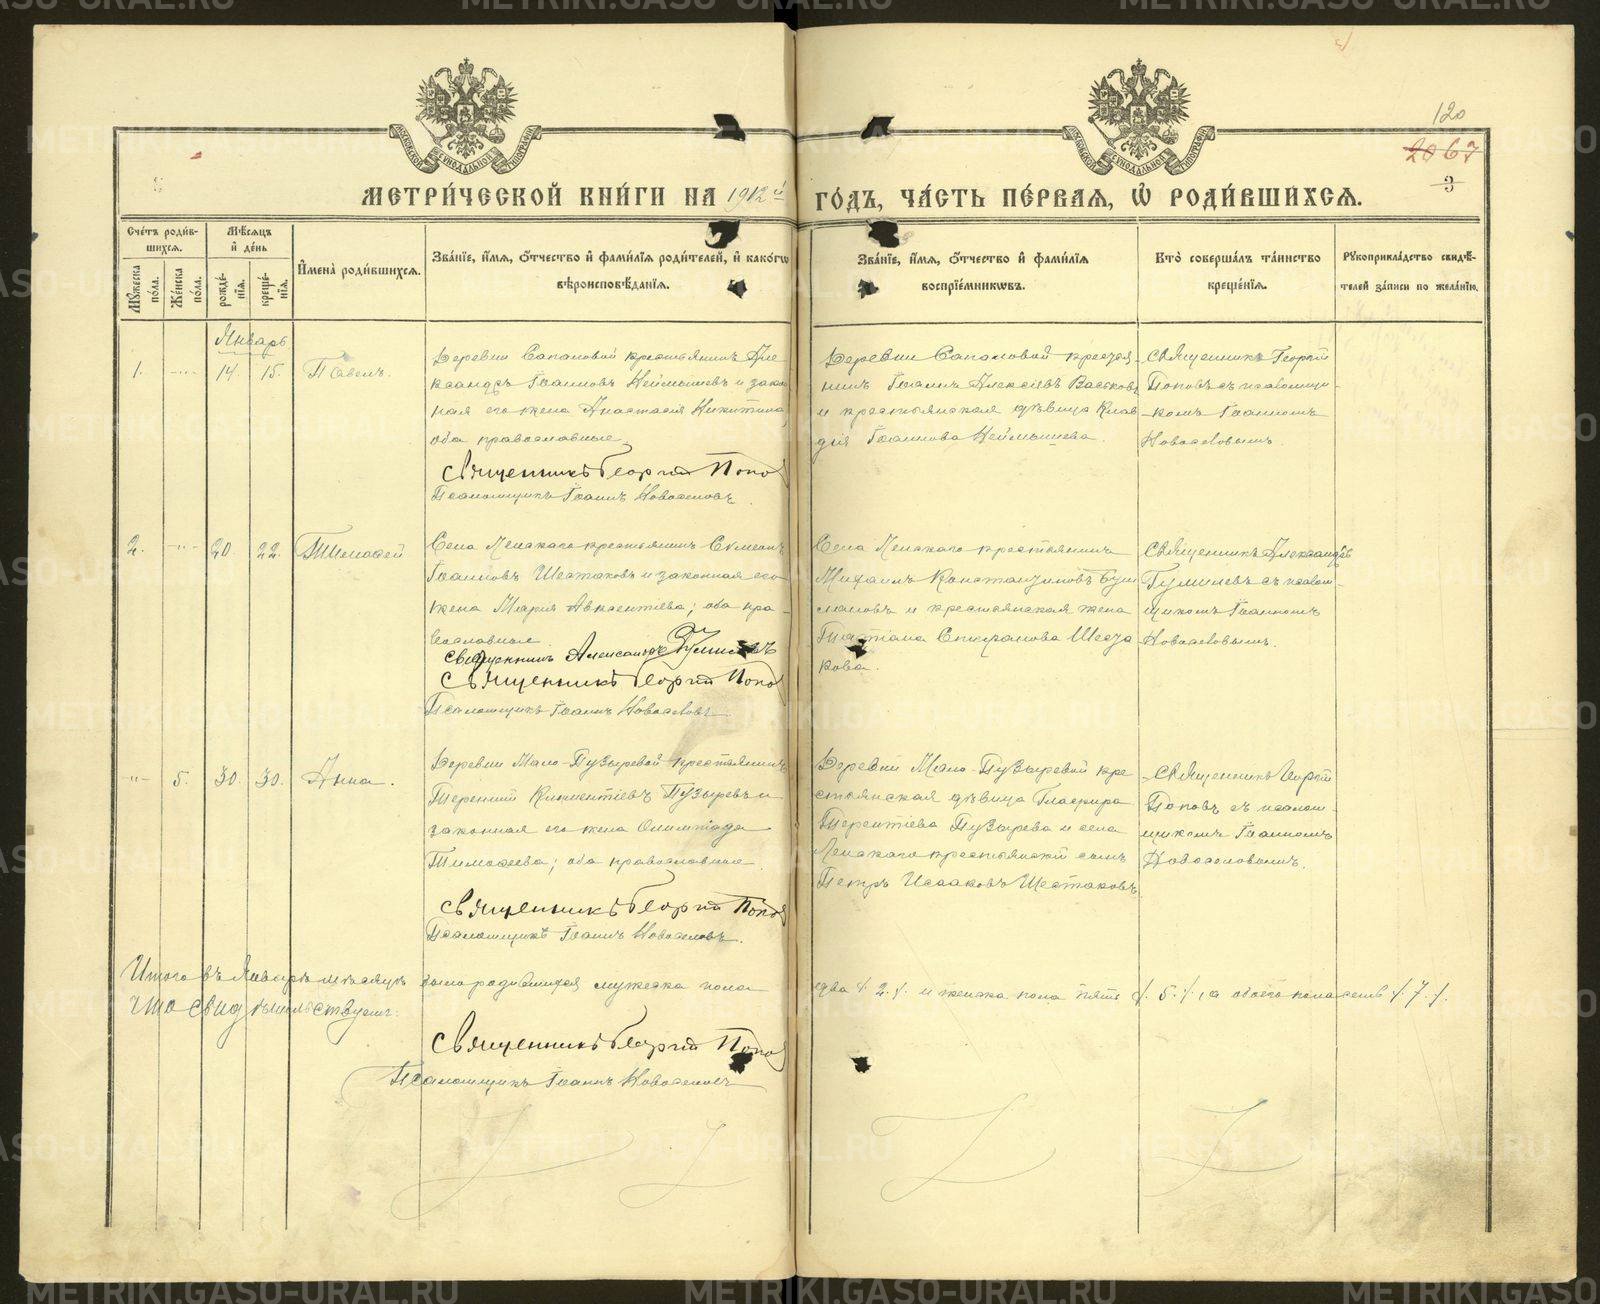 120
20 67
3
МЕТРИ́ЧЕСКОЙ КНИ́ГИ НА 1912й ГО́ДЪ, ЧА́СТЬ ПЕ́РВАЯ, Ѿ РОДИ́ВШИХСЯ.
Сче́тъ роди́в-
шихся.
Мѣ́сяцъ
и де́нь
Мꙋ́жеска
по́ла.
Же́нска
по́ла.
рожде́-
нія.
креще́-
нія.
И҆мена̀ роди́вшихся.
Зва́ніе, и҆́мя, ѻ҆́тчество и҆ фами́лія роди́телей, и҆ како́гѡ
вѣроисповѣ́данія.
Зва́ніе, и҆́мя, ѻ҆́тчество и҆ фами́лія
воспріе́мникѡвъ.
Кто̀ соверша́лъ та́инство
креще́нія.
Рꙋкоприкла́дство свидѣ́-
телей за́писи по жела́нію.
Январь
1. -"- 14. 15. Павелъ.
Деревни Сапановой крестьянинъ Але
ксандръ Іоанновъ Неймышевъ и закон
ная его жена Анастасія Никитина,
оба православные
Священникъ Георгій Попов
Псаломщикъ Іоаннъ Новоселовъ.
Деревни Сапоновой крестья-
нинъ Іоаннъ Алексіевъ Васьковъ
и крестьянская дѣвица Клав
дія Іоаннова Неймышева.
Священникъ Георгій
Поповъ съ псаломщи-
комъ Іоанномъ
Новоселовымъ.
2. -"- 20 22. Тимоѳей
Села Ленскаго крестьянинъ Сѵмеонъ
Іоанновъ Шестаковъ и законная его
жена Марія Авксентіева; оба пра-
вославные.
Священникъ Александръ Гумилевъ
Священникъ Георгій Попов
Псаломщикъ Іоаннъ Новоселовъ
Села Ленскаго крестьянинъ
Михаилъ Константиновъ
и крестьянская жена
Татіана Шеста
кова.
Священникъ Александръ
Гумилевъ съ псалом-
щикомъ Іоанномъ
Новоселовымъ.
-"- 5. 30. 30. Анна.
Деревни Мало-Пузыревой крестьянинъ
Терентій Климентіевъ Пузыревъ и
законная его жена Олимпіада
Тимоѳеева; оба православные.
Священникъ Георгій Попов
Псаломщикъ Іоаннъ Новоселовъ.
Деревни Мало-Пузыревой кре
стьянская дѣвица Глафира
Терентіева Пузырева и села
Ленскаго крестьянскій сынъ
Петръ Исааковъ Шестаковъ.
Священникъ Георгій
Поповъ съ псалом-
щикомъ Іоанномъ
Новоселовымъ.
Итого въ Январѣ мѣсяцѣ было родившихся мужеска пола два /.2./. и женска пола пять /.5./., а обоего пола семь /.7./.
Что свидѣтельствуемъ:
Священникъ Георгій Попов
Псаломщикъ Іоаннъ Новоселовъ
METRIKI.GASO-URAL.RU